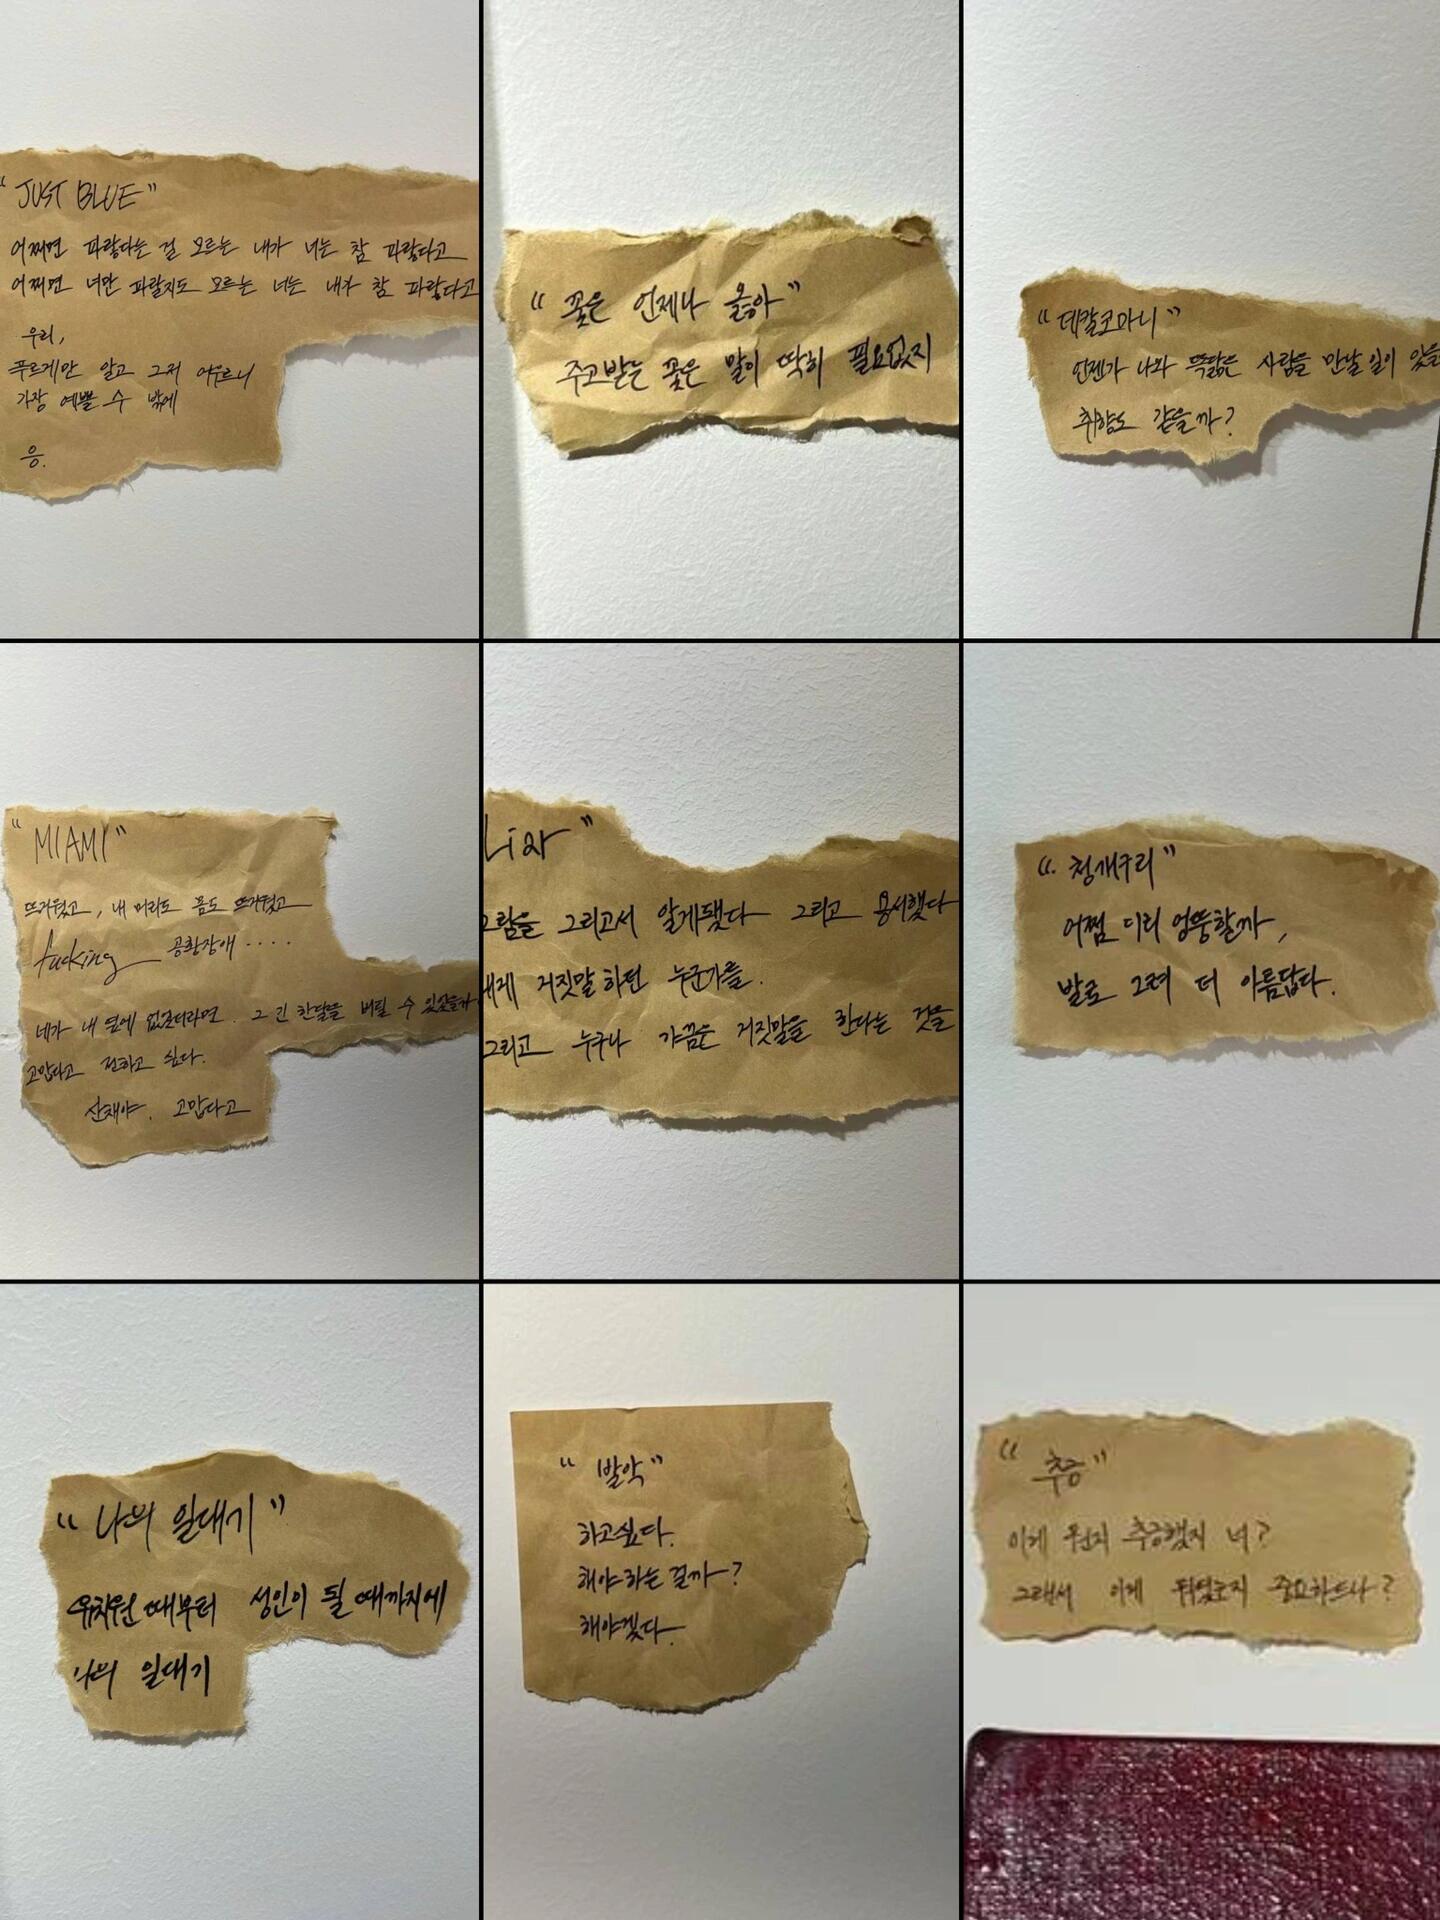 "JUST BLUE"
어쩌면 파랗다는 걸 모르는 내가 너는 참 파랗다고
어쩌면 너만 파랄지도 모르는 너는 내가 참 파랗다고
우리,
푸르게만 알고 그저 아우르니
가장 예쁠 수 밖에
응.
"꽃은 언제나 옳아"
주고받는 꽃은 말이 딱히 필요없지
"데칼코마니"
언젠가 나와 똑닮은 사람을 만날 일이 있을
취향도 같을까?
"MIAMI"
뜨거웠고, 내 머리도 몸도 뜨거웠고
fucking 공황장애....
네가 내 옆에 없었더라면. 그 긴 한달을 버틸 수 있었을까
고맙다고 전하고 싶다.
산채야. 고맙다고
Liar"
그림을 그리고서 알게됐다 그리고 용서했다
내게 거짓말하던 누군가를.
그리고 누구나 가끔은 거짓말을 한다는 것을
"청개구리"
어쩜 이리 엉뚱할까,
발로 그려 더 아름답다.
"나의 일대기"
유치원때부터 성인이 될 때까지에
나의 일대기
"발악"
하고싶다.
해야하는걸까?
해야겠다.
"추궁"
이게 뭔지 추궁했지 너?
그래서 이게 뭐였는지 중요하드나?